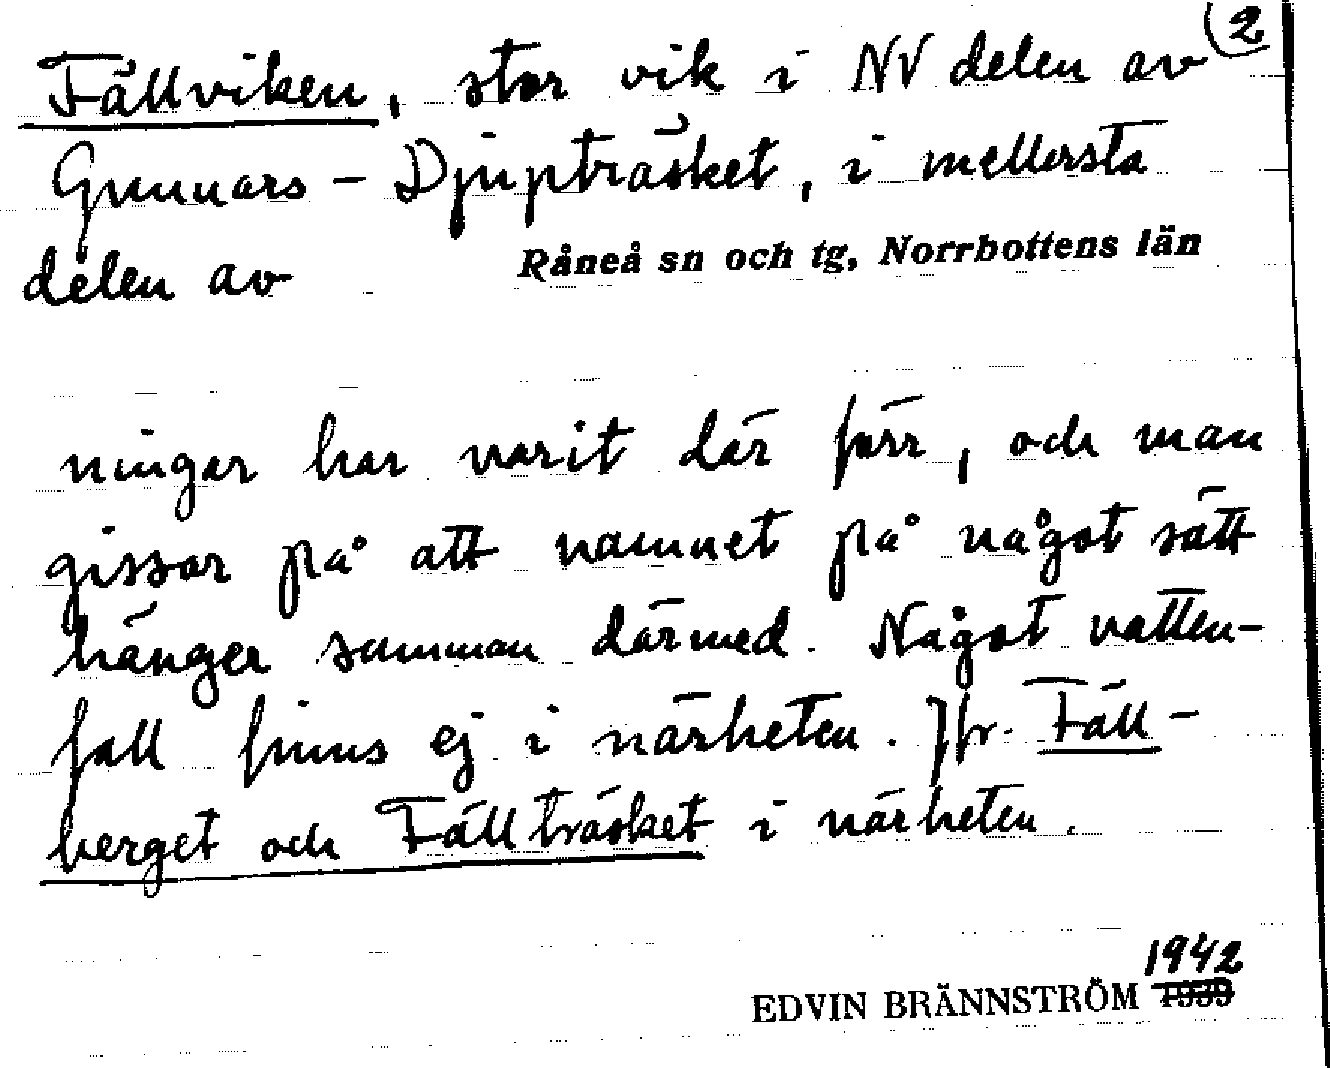 2
Fällviken, stor vik i NV delen av
Gunnars - Djupträsket, i mellersta
delen av Råneå sn och tg, Norrbottens län
ningar har varit där förr, och man
gissar på att namnet på något sätt
hänger samman därmed. Något vatten-
fall finns ej i närheten. Jfr. Fäll-
berget och Fällträsket i närheten.
1942
EDVIN BRÄNNSTRÖM 1939